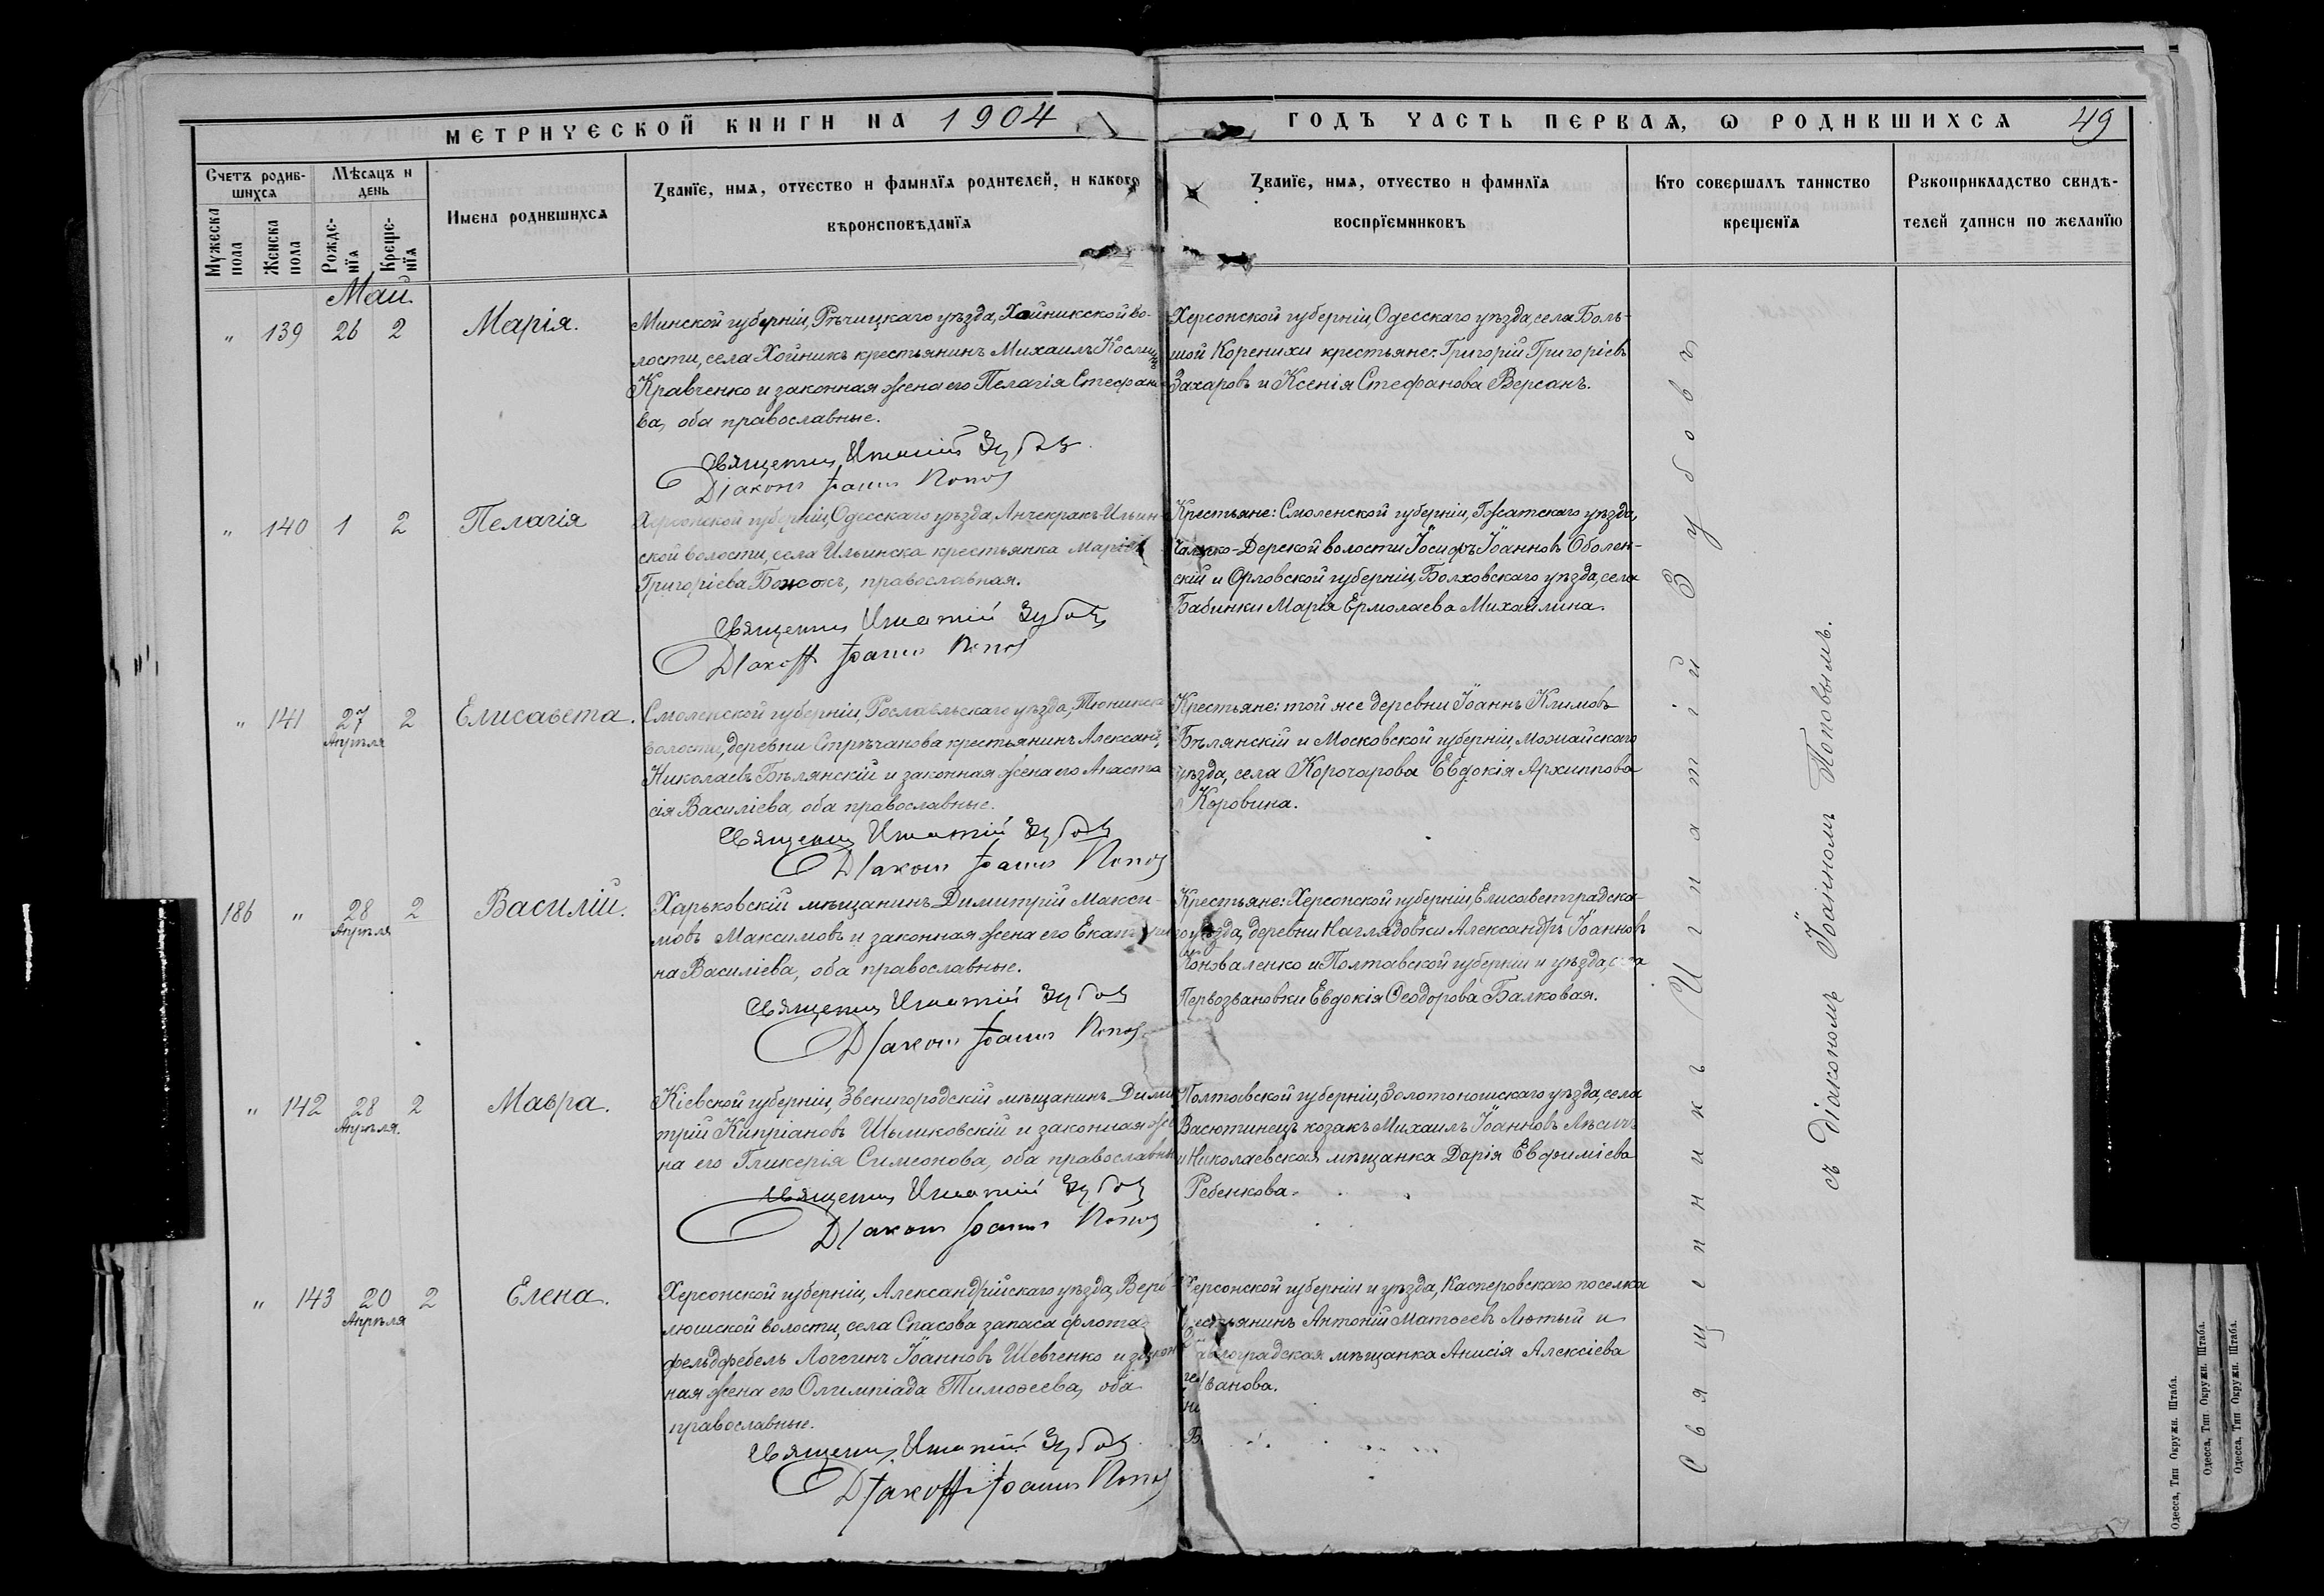 МЕТРИЧЕСКОЙ КНИГИ НА 1904
ГОДЪ ЧАСТЬ ПЕРВАѦ, Ѡ РОДИВШИХСѦ 49
Счетъ родив-
шихсѧ
Мѣсѧцъ и
день
Мужеска
пола
Женска
пола
Рожде-
нїѧ
Креще-
нїѧ
Имена родившихсѧ
Званїе, имѧ, отчество и фамилїѧ родителей, и какого
вѣроисповѣданїѧ
Званїе, имѧ, отчество и фамилїѧ
воспрїемниковъ
Кто совершалъ таинство
крещенїѧ
Рукоприкладство свидѣ-
телей записи по желанїю
Май.
„ 139 26 2 Марія.
Минской губерніи, Рѣчицкаго уѣзда, Хойникской во-
лости, села Хойникъ крестьянинъ Михаилъ
Кравченко и законная жена его Пелагія Стефано-
ва, оба православные.
Священникъ Игнатій Зубовъ
Діаконъ Іоаннъ Поповъ
Херсонской губерніи, Одесскаго уѣзда, села Боль-
шой Коренихи крестьяне: Григорій Григоріевъ
Захаровъ и Ксенія Стефанова Версанъ.
„ 140 1 2 Пелагія
Херсонской губерніи, Одесскаго уѣзда, Анчекракъ-Ильин-
ской волости, села Ильинска крестьянка Марія
Григоріева Божокъ, православная.
Священникъ Игнатій Зубовъ
Діаконъ Іоаннъ Поповъ
Крестьяне: Смоленской губерніи, Гжатскаго уѣзда,
волости Іосифъ Іоанновъ Оболен-
скій и Орловской губерніи, Болховскаго уѣзда, села
Бабинки Марія Ермолаева Михайлина.
„ 141 27 2 Елисавета.
Апрѣля
Смоленской губерніи, Рославльскаго уѣзда,
волости, деревни Стрѣчанова крестьянинъ Александръ
Николаевъ Бѣлянскій и законная жена его Анаста
сія Василіева, оба православные.
Священникъ Игнатій Зубовъ
Діаконъ Іоаннъ Поповъ
Крестьяне: той же деревни Іоаннъ Климовъ
Бѣлянскій и Московской губерніи, Можайскаго
уѣзда, села Корочарова Евдокія Архиппова
Коровина.
186 „ 28 2 Василій.
Апрѣля
Харьковскій мѣщанинъ Димитрій Макси-
мовъ Максимовъ и законная жена его Екатери
на Василіева, оба православные.
Священникъ Игнатій Зубовъ
Діаконъ Іоаннъ Поповъ
Крестьяне: Херсонской губерніи, Елисаветградска-
го уѣзда, деревни Наглядовки Александръ Іоанновъ
Коноваленко и Полтавской губерніи и уѣзда, села
Первозвановки Евдокія Ѳеодорова Балковая.
„ 142 28 2 Мавра.
Апрѣля.
Кіевской губерніи, Звенигородскій мѣщанинъ Дими
трій Кипріановъ Шыликовскій и законная же
на его Гликерія Симеонова, оба православные
Священникъ Игнатій Зубовъ
Діаконъ Іоаннъ Поповъ
Полтавской губерніи, Золотоношскаго уѣзда, села
Васютинецъ козакъ Михаилъ Іоанновъ
и Николаевская мѣщанка Дарія Евфиміева
Ребенкова.
„ 143 20 2 Елена.
Апрѣля
Херсонской губерніи, Александрійскаго уѣзда, Вер
люшской волости, села Спасова запаса флота
фельдфебель Логгинъ Іоанновъ Шевченко и закон
ная жена его Олимпіада Тимоѳеева, оба
православные.
Священникъ Игнатій Зубовъ
Діаконъ Іоаннъ Поповъ
Херсонской губерніи и уѣзда, Касперовскаго поселка
крестьянинъ Антоній Матѳеевъ Лютый и
мѣщанка Анисія Алексіева
Иванова.
Священникъ Игнатій Зубовъ
съ Діакономъ Іоанномъ Поповымъ.
Одесса, Тип Окружн. Штаба.
Одесса, Тип. Окружн. Штаба.
Одесса, Тип Окружн. Штаба.